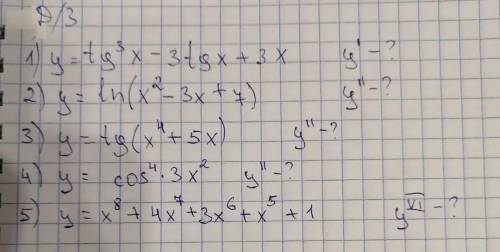 Д/З
1) y = tg³x - 3tgx + 3x y' - ?
2) y = ln(x² - 3x + 7) y'' - ?
3) y = tg(x⁴ + 5x) y'' - ?
4) y = cos⁴·3x² y'' - ?
5) y = x⁸ + 4x⁷ + 3x⁶ + x⁵ + 1 y^VI - ?